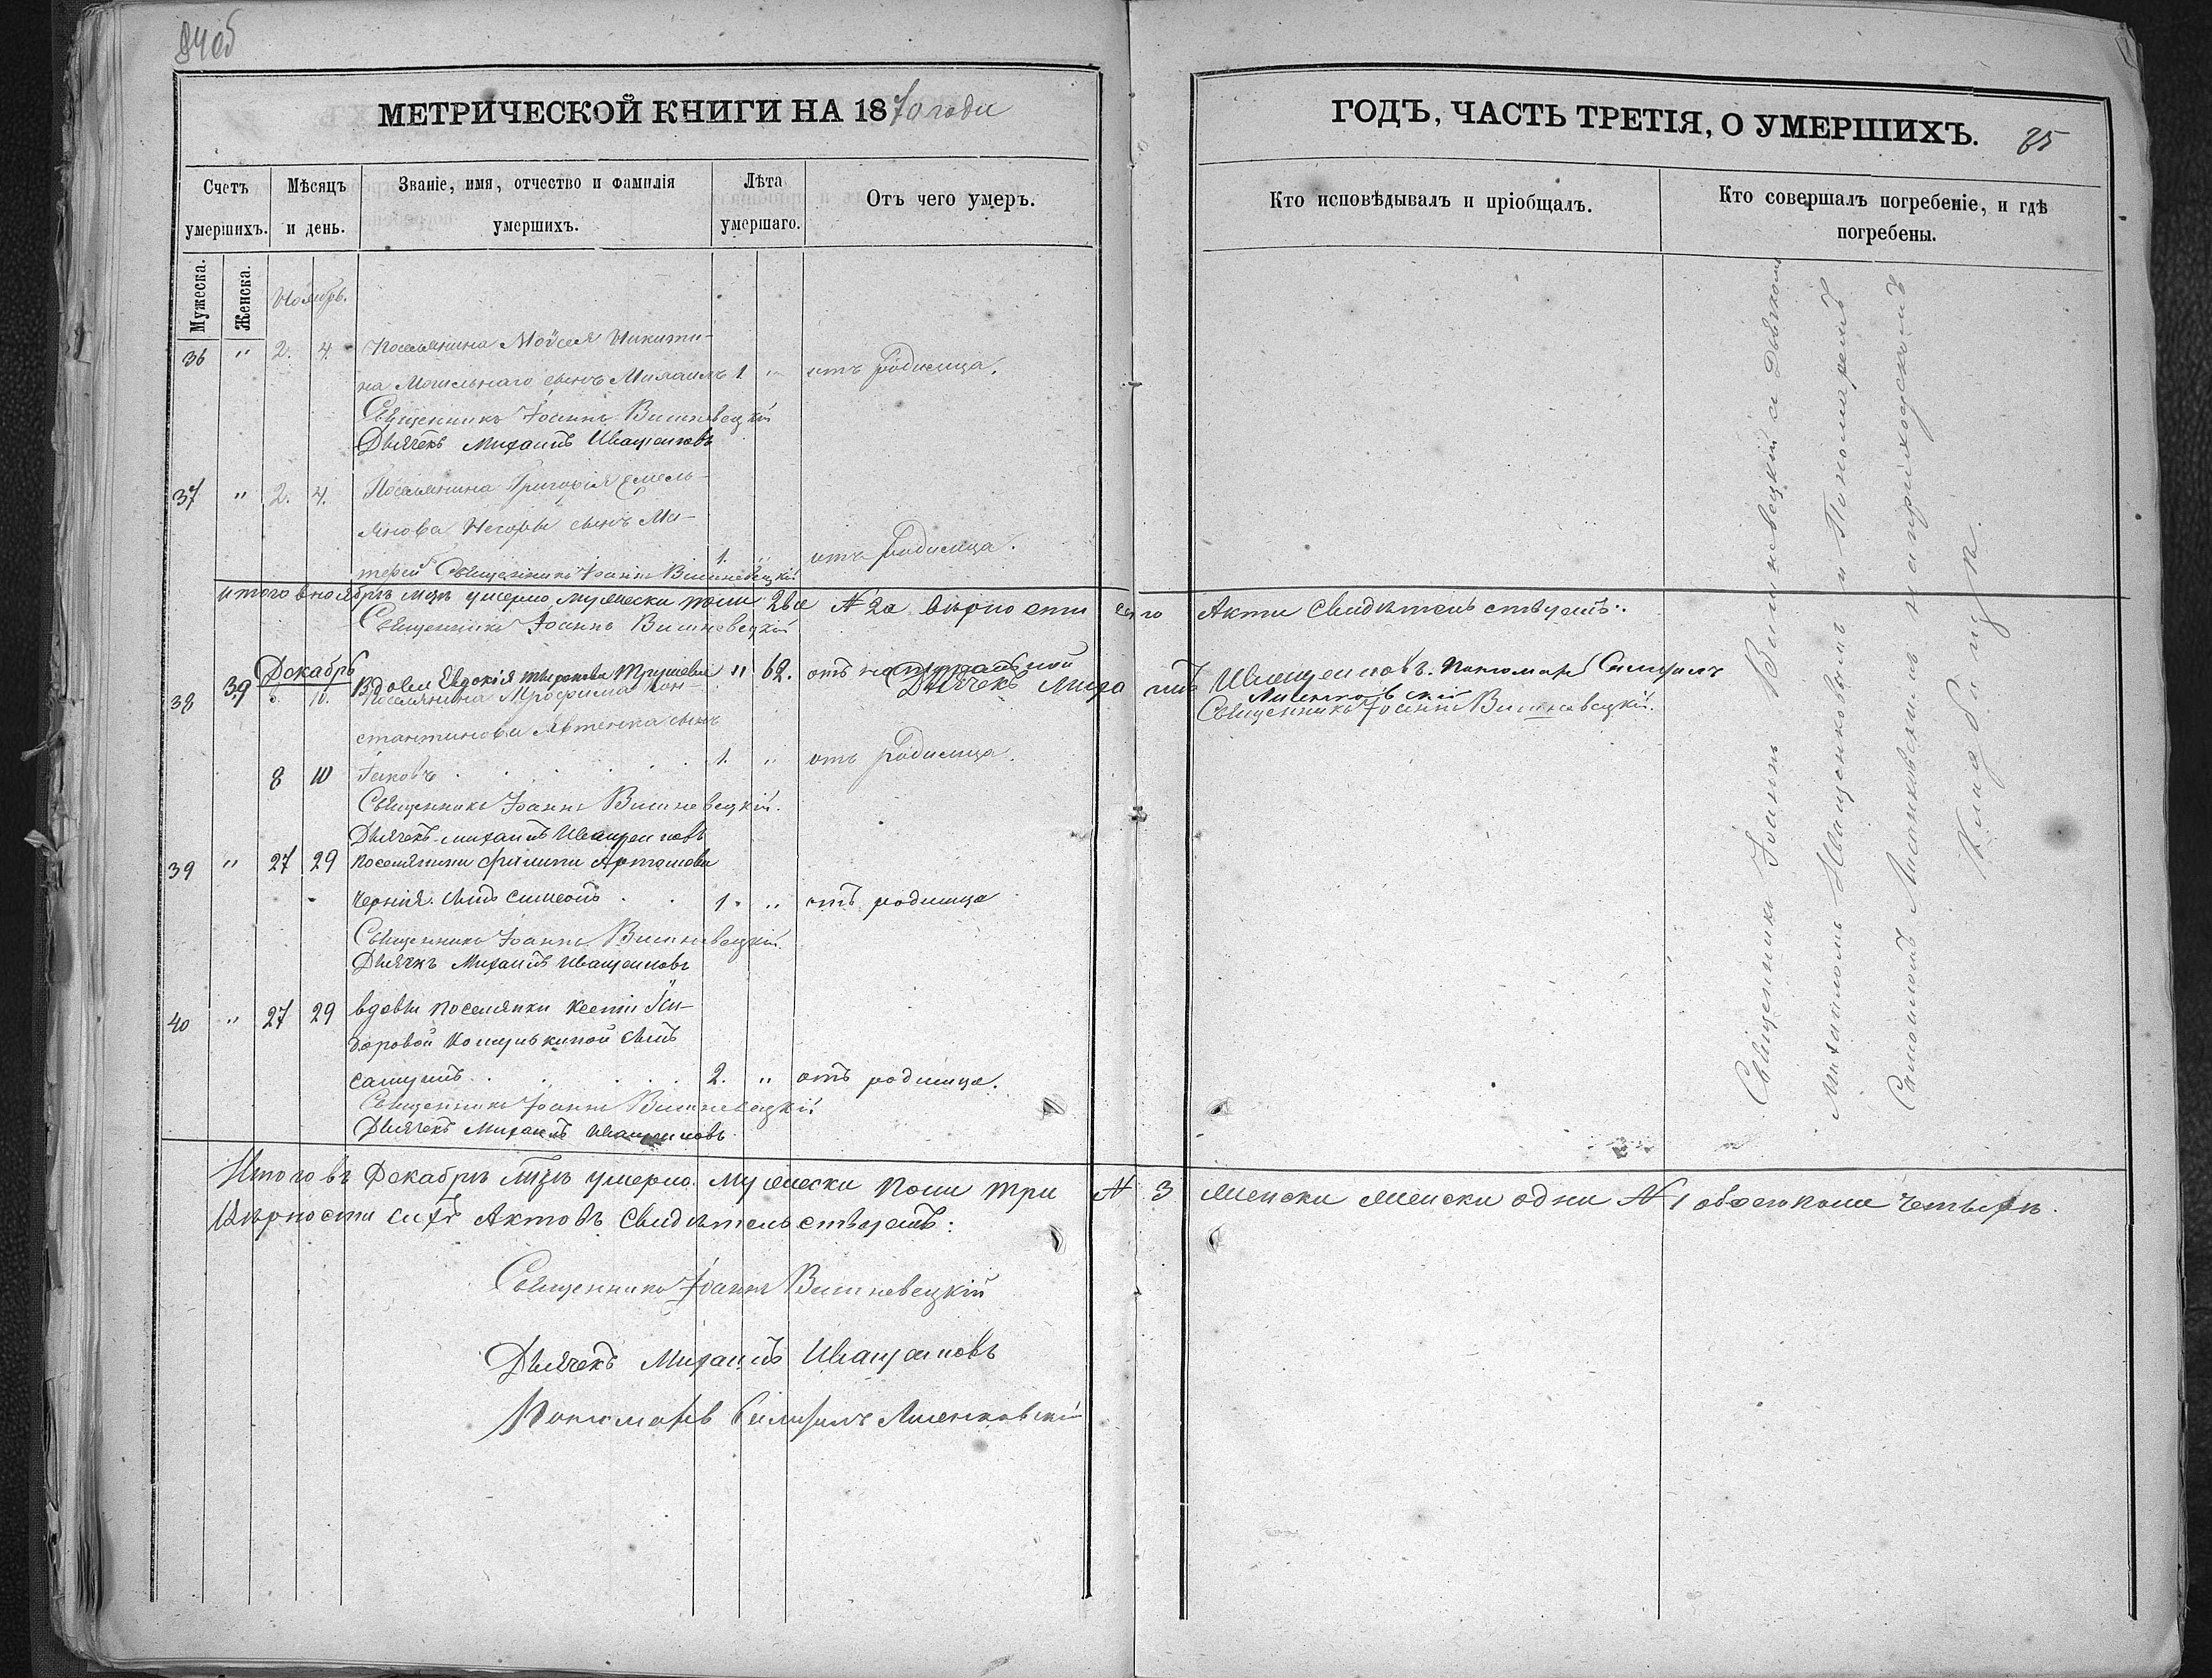 84об
МЕТРИЧЕСКОЙ КНИГИ НА 1870 года
Счетъ умершихъ.
Мѣсяцъ и день.
Званіе, имя, отчество и фамилія умершихъ.
Лѣта умершаго.
Отъ чего умеръ.
Мужеска.
Женска.
Ноябрь.
36 " 2. 4. Поселянина Мойсея Никити-
на Могильнаго сынъ Михаилъ 1. " отъ родимца.
Священникъ Іоаннъ Вишневецкій
Дьячекъ Михаилъ Иващенковъ
37 " 2. 4. Поселянина Григорія Емель-
янова сынъ Ми-
1. " отъ родимца.
Священникъ Іоаннъ Вишневецкій
Итого в ноябрѣ мцѣ умерло мужеска пола два № 2а вѣрность сего Акта свидѣтельствуемъ:
Священникъ Іоаннъ Вишневецкій
Дьячекъ Михаилъ Иващенковъ. Пономарь
Священникъ Іоаннъ Вишневецкій.
Декабрь
39 Вдова Евдокія " 62. отъ натуральной
38 6. 10. Поселянина Трофима Кон-
стантинова сынъ
8 10 Іаковъ . . . . . 1. " отъ родимца.
Священникъ Іоаннъ Вишневецкій.
Дьячекъ Михаилъ Иващенковъ
39 " 27 29 Поселянина Филипа Артемова
Черния сынъ Симеонъ . . 1. " отъ родимца
Священникъ Іоаннъ Вишневецкій.
Дьячкъ Михаилъ Иващенковъ
40 " 27 29 вдовы поселянки Ксеніи Іси-
доровой сынъ
Самуилъ . . . . . 2. " отъ родимца.
Священникъ Іоаннъ Вишневецкій
Дьячекъ Михаилъ Иващенковъ
Итого въ Декабрѣ мцѣ умерло мужеска пола три № 3 женска женска одна № 1 обоего пола четыре.
Вѣрность сихъ Актовъ свидѣтельствуемъ:
Священникъ Іоаннъ Вишневецкій
Дьячекъ Михаилъ Иващенковъ
Пономарь
ГОДЪ, ЧАСТЬ ТРЕТІЯ, О УМЕРШИХЪ.
85
Кто исповѣдывалъ и пріобщалъ.
Кто совершалъ погребеніе, и гдѣ погребены.
Священникъ Іоаннъ Вишневецкій съ Дьячкомъ
Михаиломъ Иващенковымъ и Пономаремъ
на приходскомъ
Кладбищѣ.